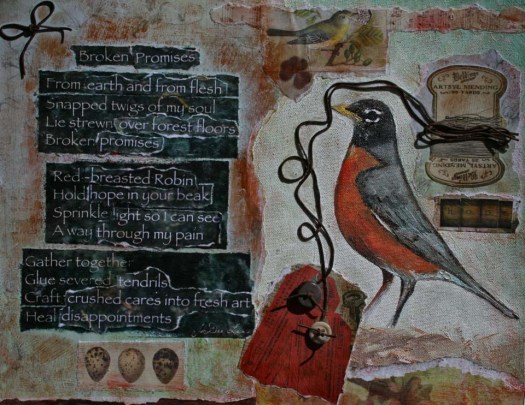 Broken Promises
From earth and from flesh
Snapped twigs of my soul
Lie strewn over forest floors
Broken promises
Red-breasted Robin
Hold hope in your beak
Sprinkle light so I can see
A way through my pain
Gather together
Glue severed tendrils
Craft crushed cares into fresh art
Heal disappointments
ARTSYL MENDING
ARTSYL MENDING